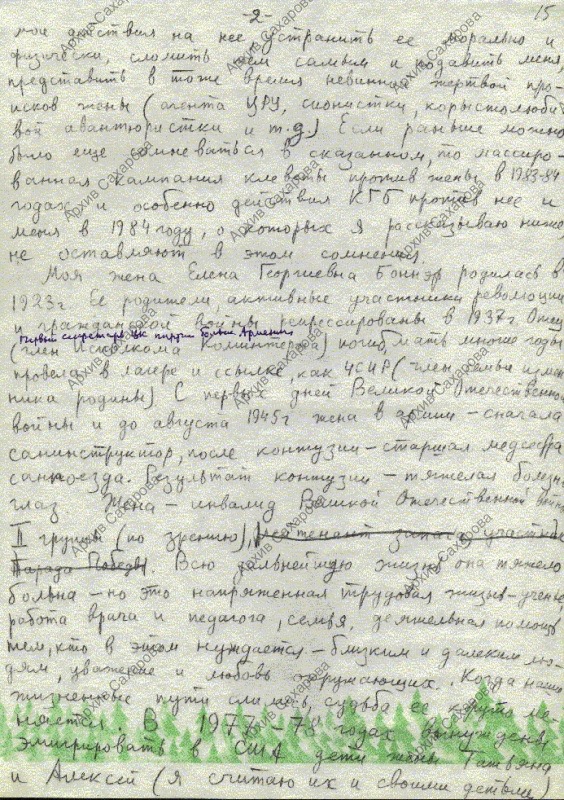 -2-
15
мои действия на нее, устранить ее морально и
физически, сломить тем самым и подавить меня,
представить в тоже время невинной жертвой про-
исков жены (агента ЦРУ, сионистки, корыстолюби
вой авантюристки и т.д.) Если раньше можно
было еще сомневаться в сказанном, то массиро-
ванная кампания клеветы против жены в 1983-84
годах и особенно действия КГБ против нее и
меня в 1984 году, о которых я рассказываю ниже
не оставляют в этом сомнения.
Моя жена Елена Георгиевна Боннэр родилась в
1923г Ее родители, активные участники революции
и гражданской войны репрессированы в 1937г. Отец
первый секретарь ЦК партии Армении
(член Исполкома Коминтерна) погиб, мать многие годы
провела в лагере и ссылке, как ЧСИР (член семьи измен
ника родины) С первых дней Великой Отечественной
войны и до августа 1945г жена в армии - сначала
санинструктор, после контузии - старшая медсестра
санпоезда. Результат контузии - тяжелая болезнь
глаз. Жена - инвалид Великой Отечественной войны
II группы (по зрению), лейтенант запаса участник
Парада Победы. Всю дальнейшую жизнь она тяжело
больна - но это напряженная трудовая жизнь - ученье,
работа врача и педагога, семья, деятельная помощь
тем, кто в этом нуждается - близким и далеким лю-
дям, уважение и любовь окружающих. Когда наши
жизненные пути слились, судьба ее круто ме-
няется. В 1977-78 годах вынуждены
эмигрировать в США дети жены Татьяна
и Алексей (я считаю их и своими детьми)
Архив Сахарова